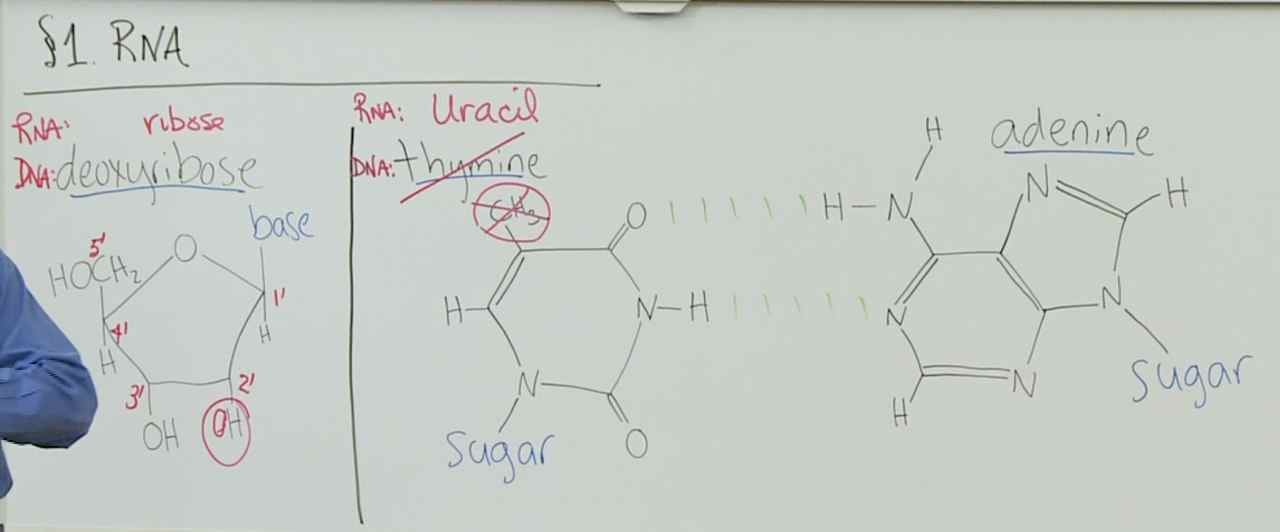 §1. RNA
RNA: ribose
DNA: deoxyribose
base
5'
HOCH₂
O
1'
H
4'
H
3'
2'
OH
OH
RNA: Uracil
DNA: thymine
CH₃
O
H
N-H
N
O
sugar
adenine
H
H-N
N
H
N
N
N
H
sugar